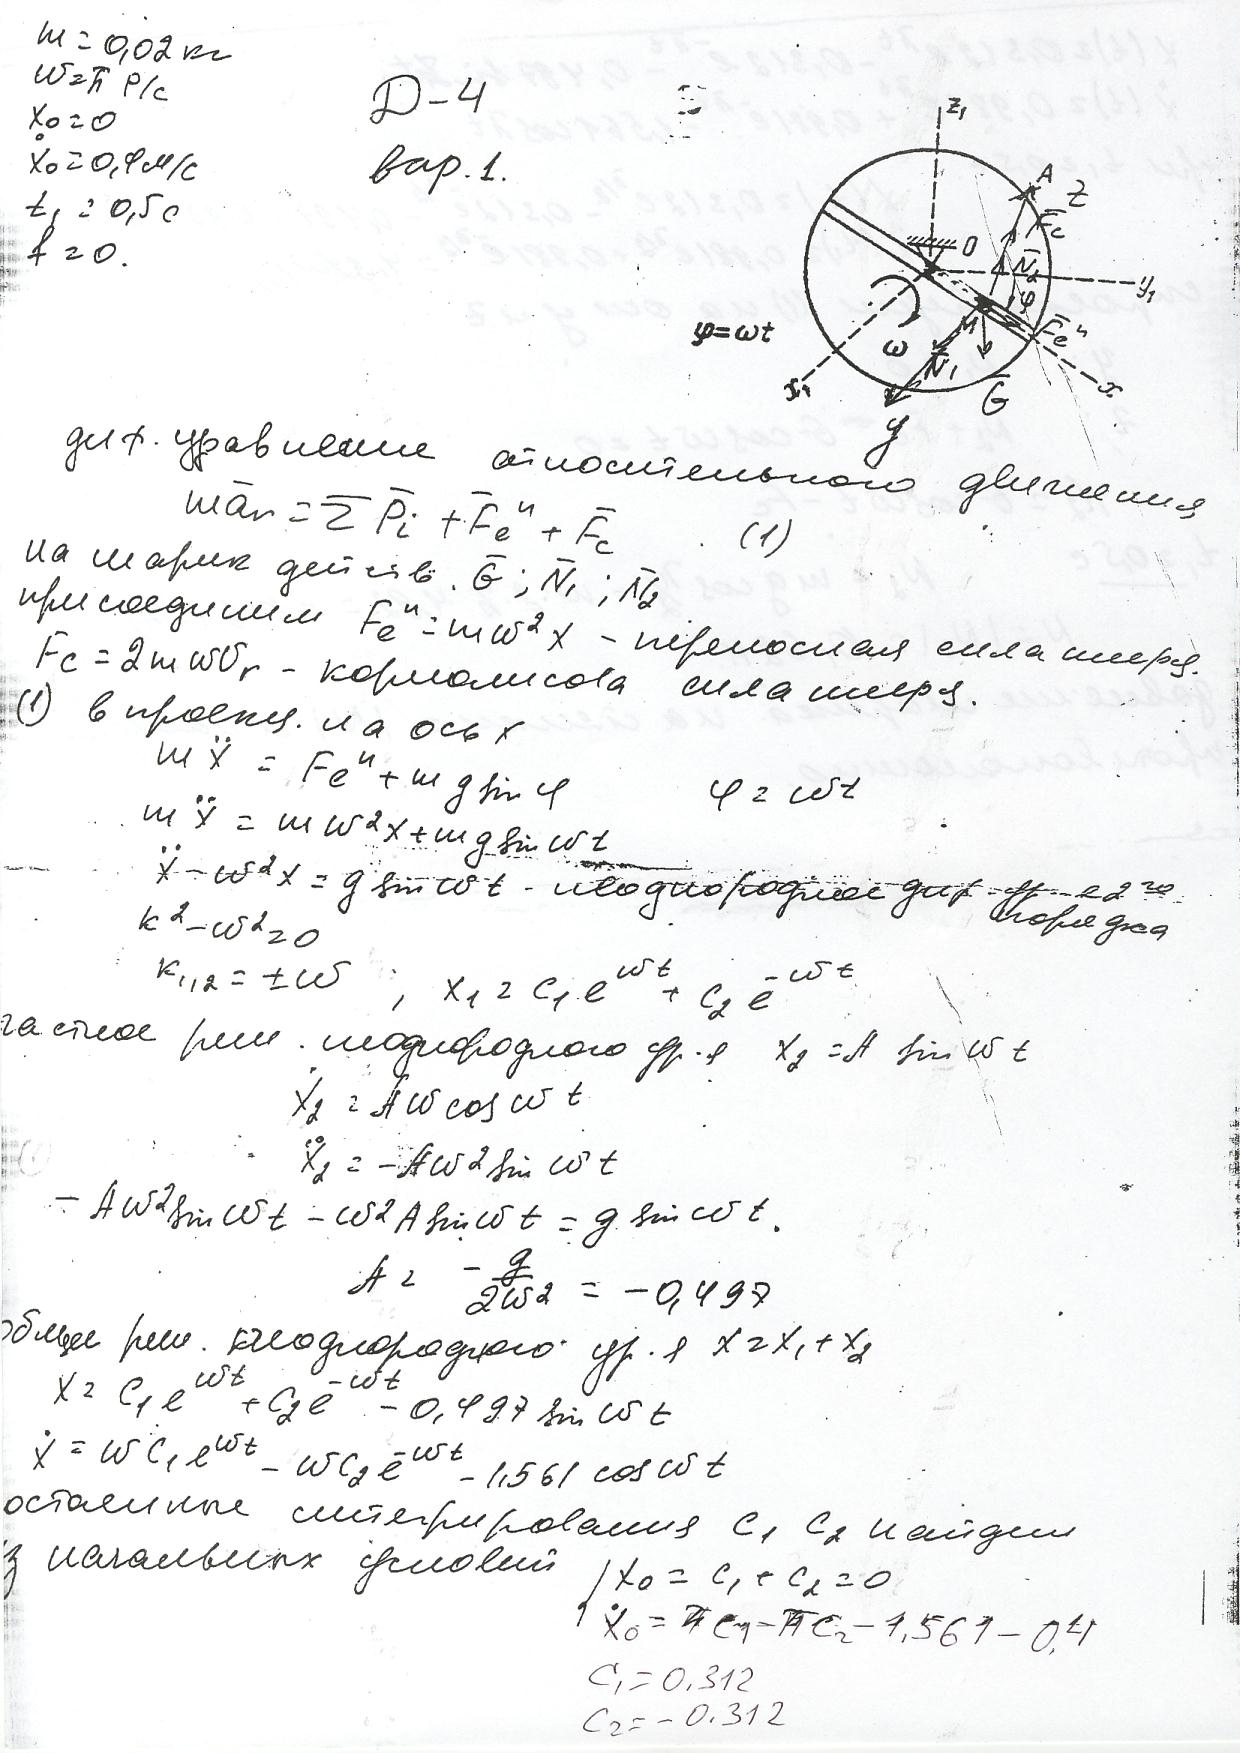 m = 0,02 кг
ω = π р/с
x₀ = 0
ẋ₀ = 0,4 м/с
t₁ = 0,5 с
f = 0.
Д-4
вар. 1.
z₁
A
z
F̄c
O
N̄₂
y₁
φ
M
F̄eⁿ
φ = ωt
ω
N̄₁
x₁
x
Ḡ
y
диф. уравнение относительного движения
mār = Σ P̄i + F̄eⁿ + F̄c (1)
на шарик действ. Ḡ ; N̄₁ ; N̄₂
присоединим Feⁿ = mω²x - переносная сила инерц.
Fc = 2mωVr - кориолисова сила инерц.
(1) в проекц. на ось x
mẍ = Feⁿ + mg sin φ φ = ωt
mẍ = mω²x + mg sin ωt
ẍ - ω²x = g sin ωt - неоднородное диф. ур-е 2го
порядка
k² - ω² = 0
k₁,₂ = ±ω ; x₁ = C₁e^ωt + C₂e^-ωt
частное реш. неоднородного ур-я x₂ = A sin ωt
ẋ₂ = Aω cos ωt
ẍ₂ = -Aω² sin ωt
-Aω² sin ωt - ω²A sin ωt = g sin ωt.
A = -g/2ω² = -0,497
общее реш. неоднородного ур-я x = x₁ + x₂
x = C₁e^ωt + C₂e^-ωt - 0,497 sin ωt
ẋ = ωC₁e^ωt - ωC₂e^-ωt - 1,561 cos ωt
остоянные интегрирования C₁ C₂ найдем
з начальных условий
x₀ = C₁ + C₂ = 0
ẋ₀ = πC₁ - πC₂ - 1,561 - 0,4
C₁ = 0.312
C₂ = - 0.312